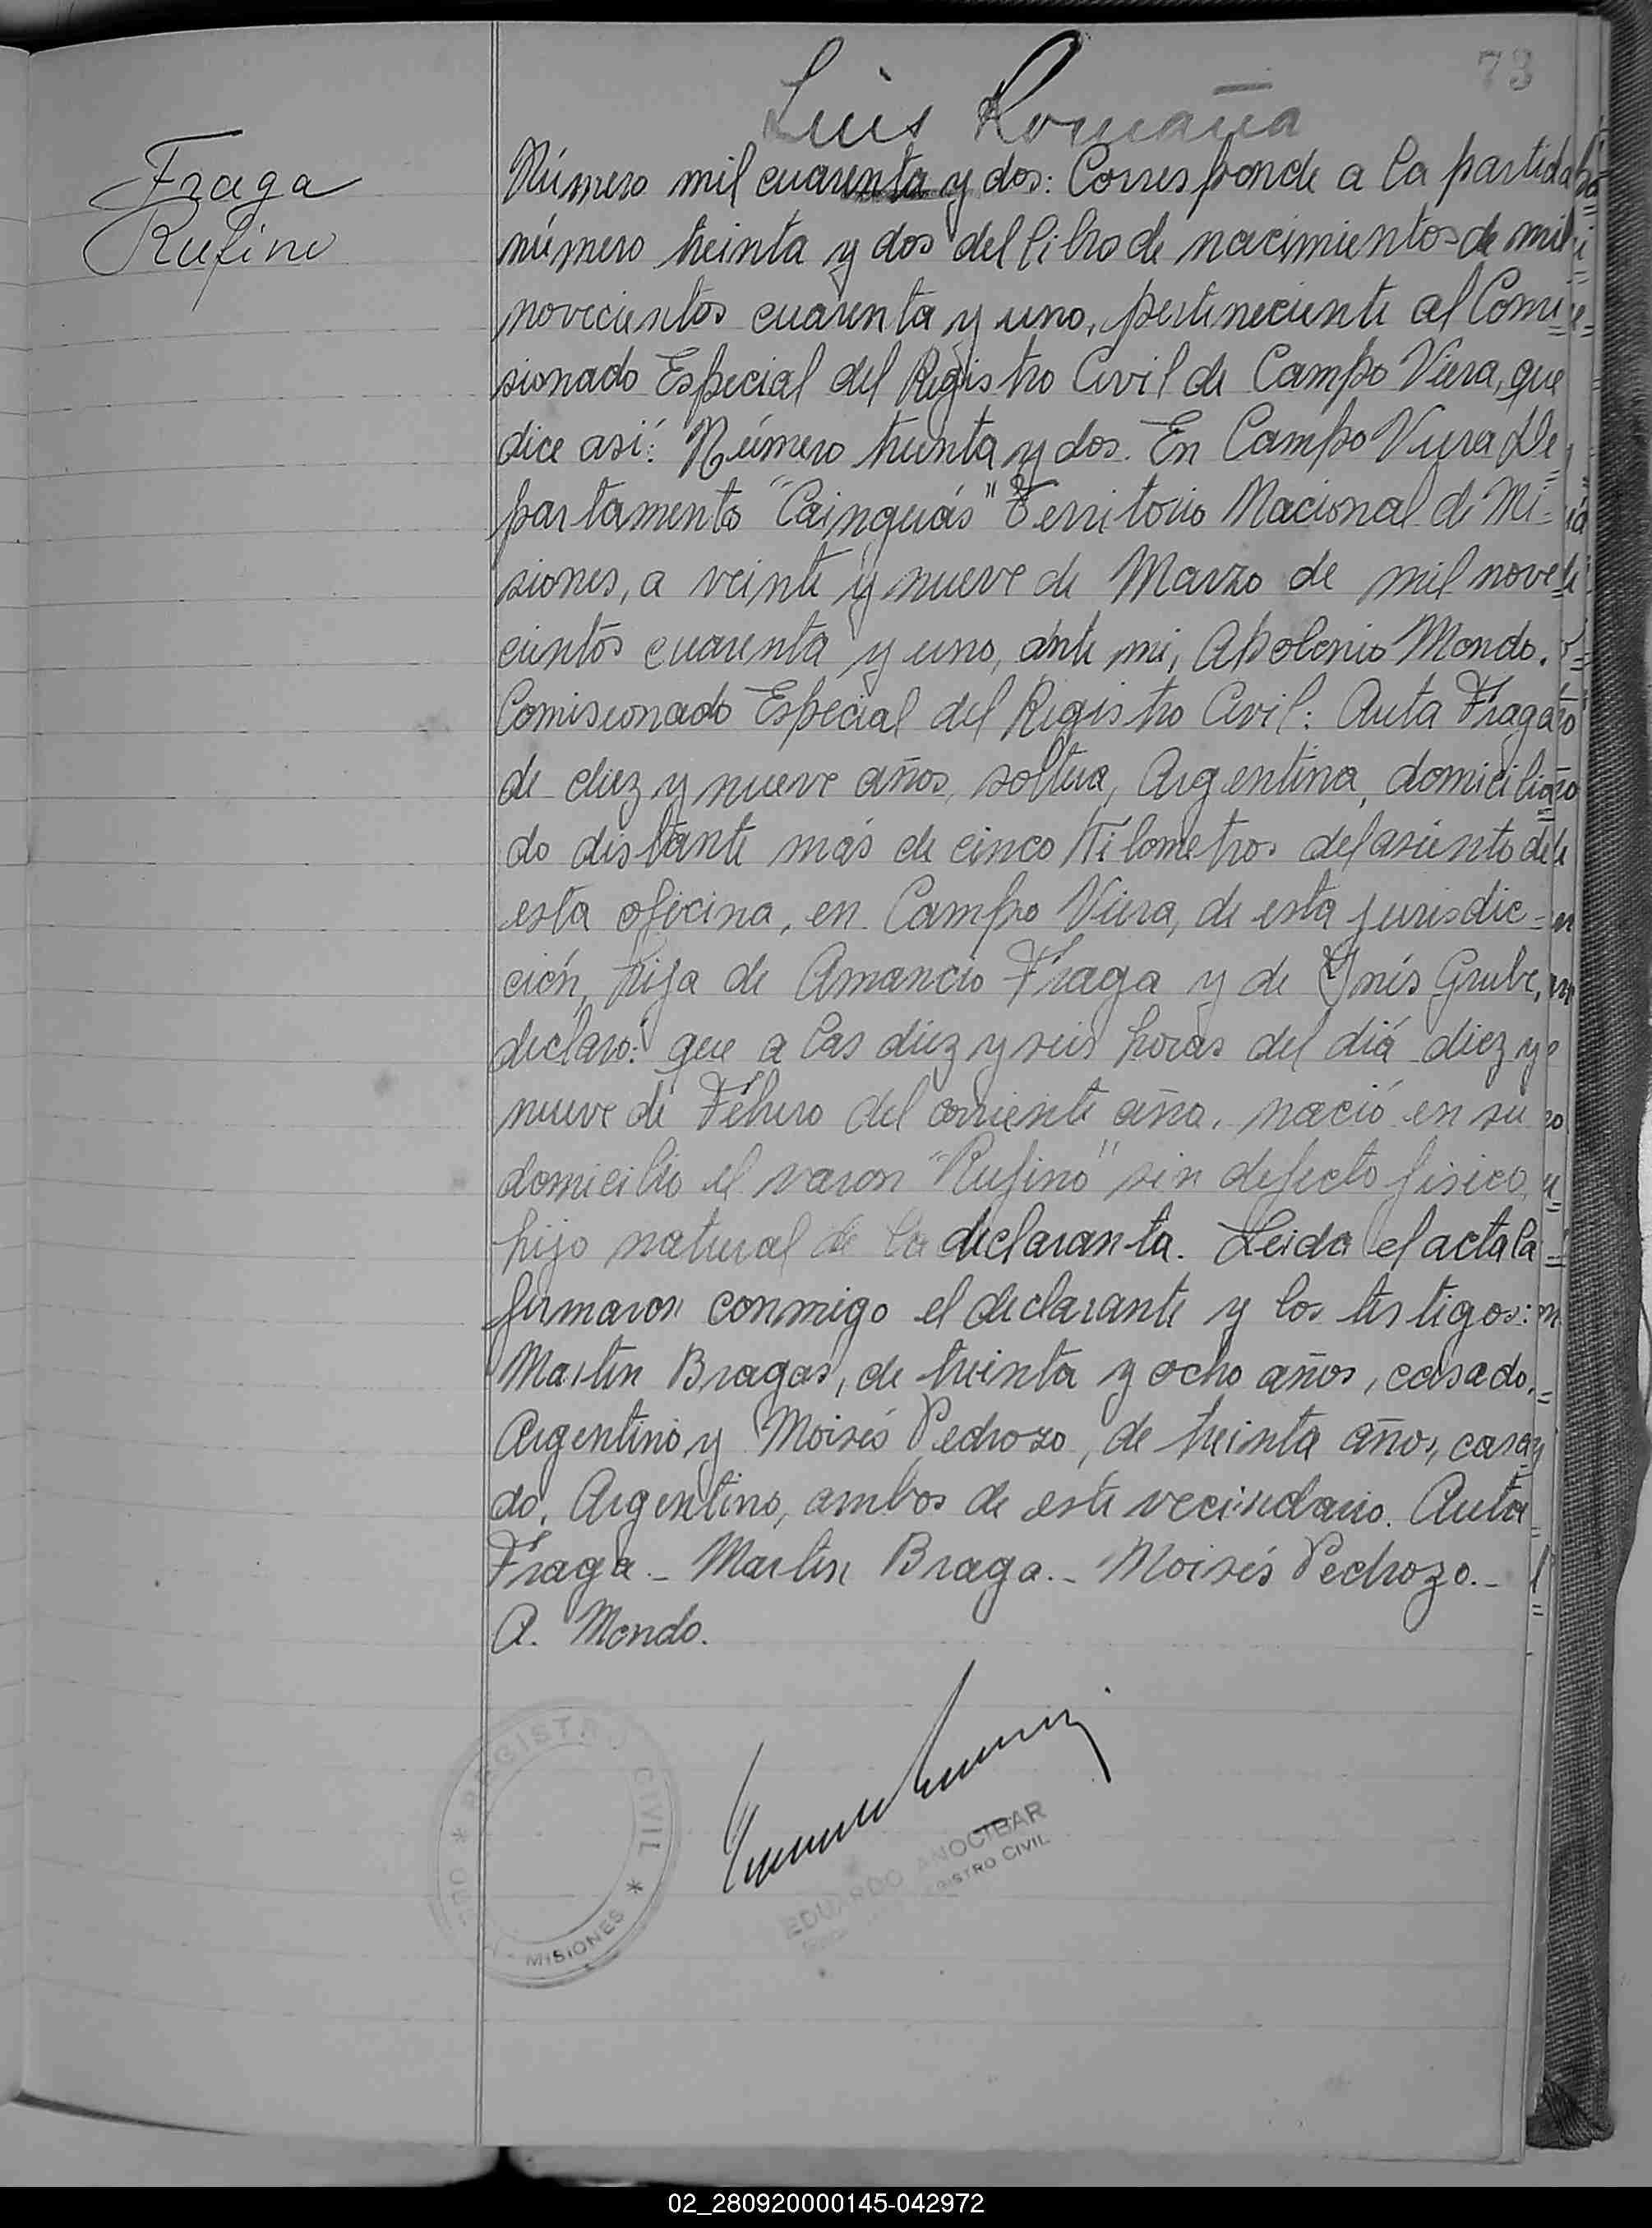 73
Luis Romaña
Fraga
Rufino
Número mil cuarenta y dos: Corresponde a la partida
número treinta y dos del libro de nacimientos de mil
novecientos cuarenta y uno, perteneciente al Comi=
sionado Especial del Registro Civil de Campo Viera, que
dice así: Número treinta y dos. En Campo Viera De
partamento "Cainguás" Territorio Nacional de Mi=
siones, a veinte y nueve de Marzo de mil nove=
cientos cuarenta y uno, ante mi, Apolonio Mondo.
Comisionado Especial del Registro Civil: Auta Fraga
de diez y nueve años, soltera, Argentina, domicilia=
do distante más de cinco Kilometros del asiento de
esta oficina, en Campo Viera, de esta jurisdic=
ción, hija de Amancio Fraga y de Ynés Grube,
declaro: que a las diez y seis horas del diá diez y
nueve de Febrero del corriente año, nació en su
domicilio el varon "Rufino" sin defecto fisico,
hijo natural de la declaranta. Leida el acta la
firmaron conmigo el declarante y los testigos:
Martin Bragas, de treinta y ocho años, casado,
Argentino y Moisés Pedrozo, de treinta años, casa=
do, Argentino, ambos de este vecindario. Auta
Fraga.- Martin Braga.- Moisés Pedrozo.-
A. Mondo.
REGISTRO CIVIL
MISIONES
EDUARDO ANOCIBAR
REGISTRO CIVIL
02_280920000145-042972